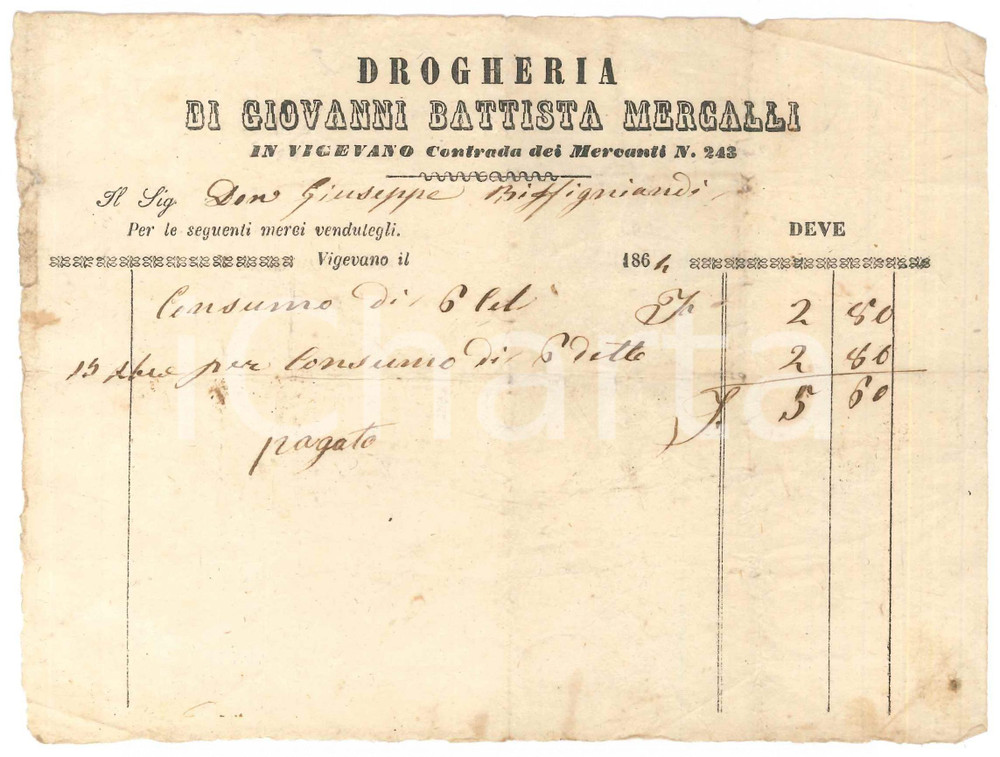 DROGHERIA
DI GIOVANNI BATTISTA MERCALLI
IN VIGEVANO Contrada dei Mercanti N. 243
Il Sig. Don Giuseppe Biffigniandi
Per le seguenti merci vendutegli. DEVE
Vigevano il 1864
Consumo di 6 2 80
per Consumo di 6 dette 2 80
5 60
pagato
iCharta